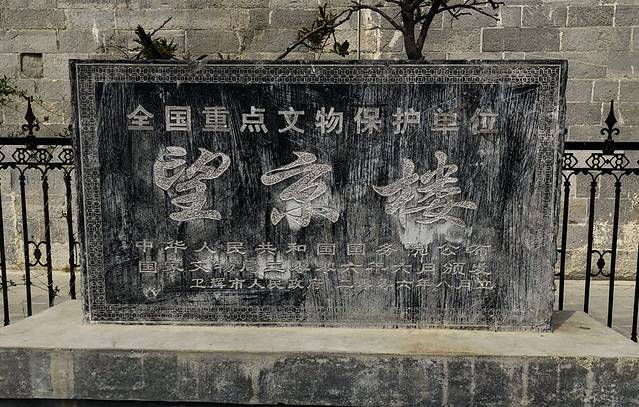 全国重点文物保护单位
望京楼
中华人民共和国国务院公布
国家文物局二零零六年六月颁发
卫辉市人民政府 二零零六年八月立